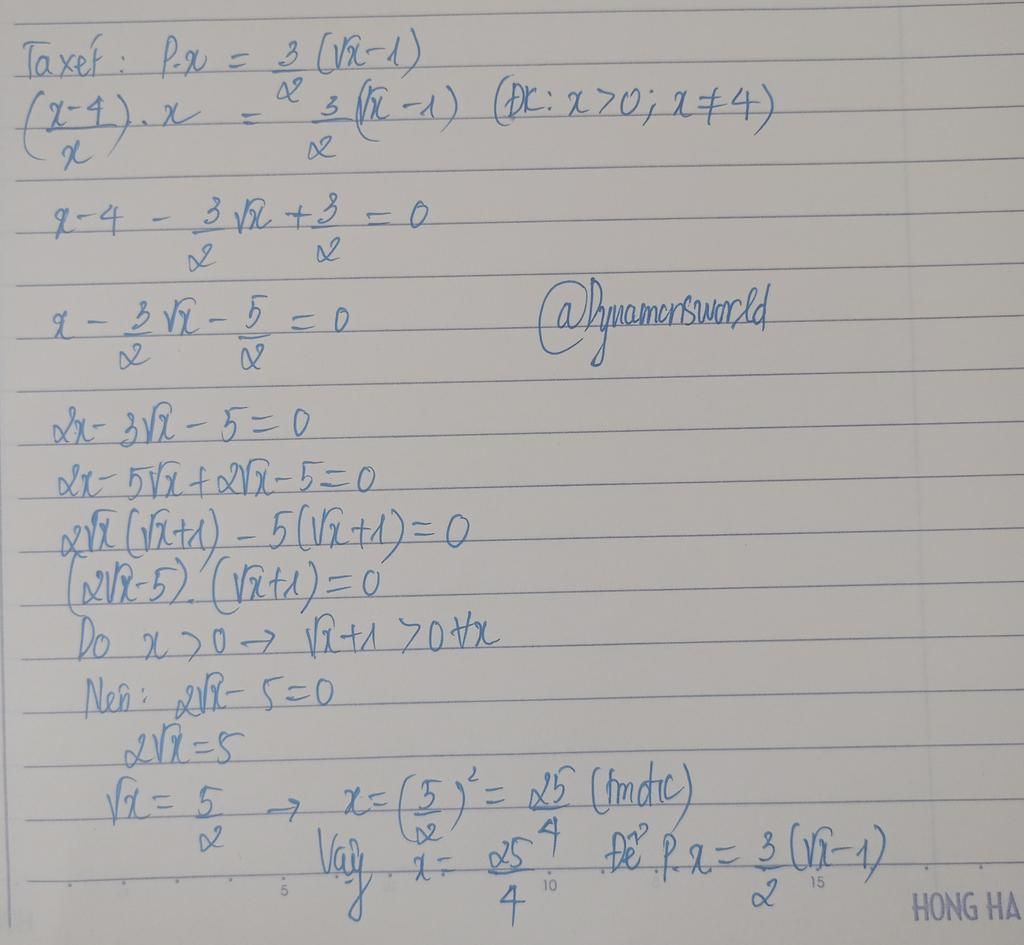 Ta xét: P.x = 3/2 (√x - 1)
(x-4/x) . x = 3/2 (√x - 1) (ĐK: x > 0; x ≠ 4)
x - 4 - 3/2 √x + 3/2 = 0
x - 3/2 √x - 5/2 = 0
@Dynamonsworld
2x - 3√x - 5 = 0
2x - 5√x + 2√x - 5 = 0
2√x (√x + 1) - 5(√x + 1) = 0
(2√x - 5).(√x + 1) = 0
Do x > 0 → √x + 1 > 0 ∀x
Nên: 2√x - 5 = 0
2√x = 5
√x = 5/2 → x = (5/2)² = 25/4 (tmđk)
Vậy x = 25/4 Để P.x = 3/2 (√x - 1)
5 10 15
HONG HA